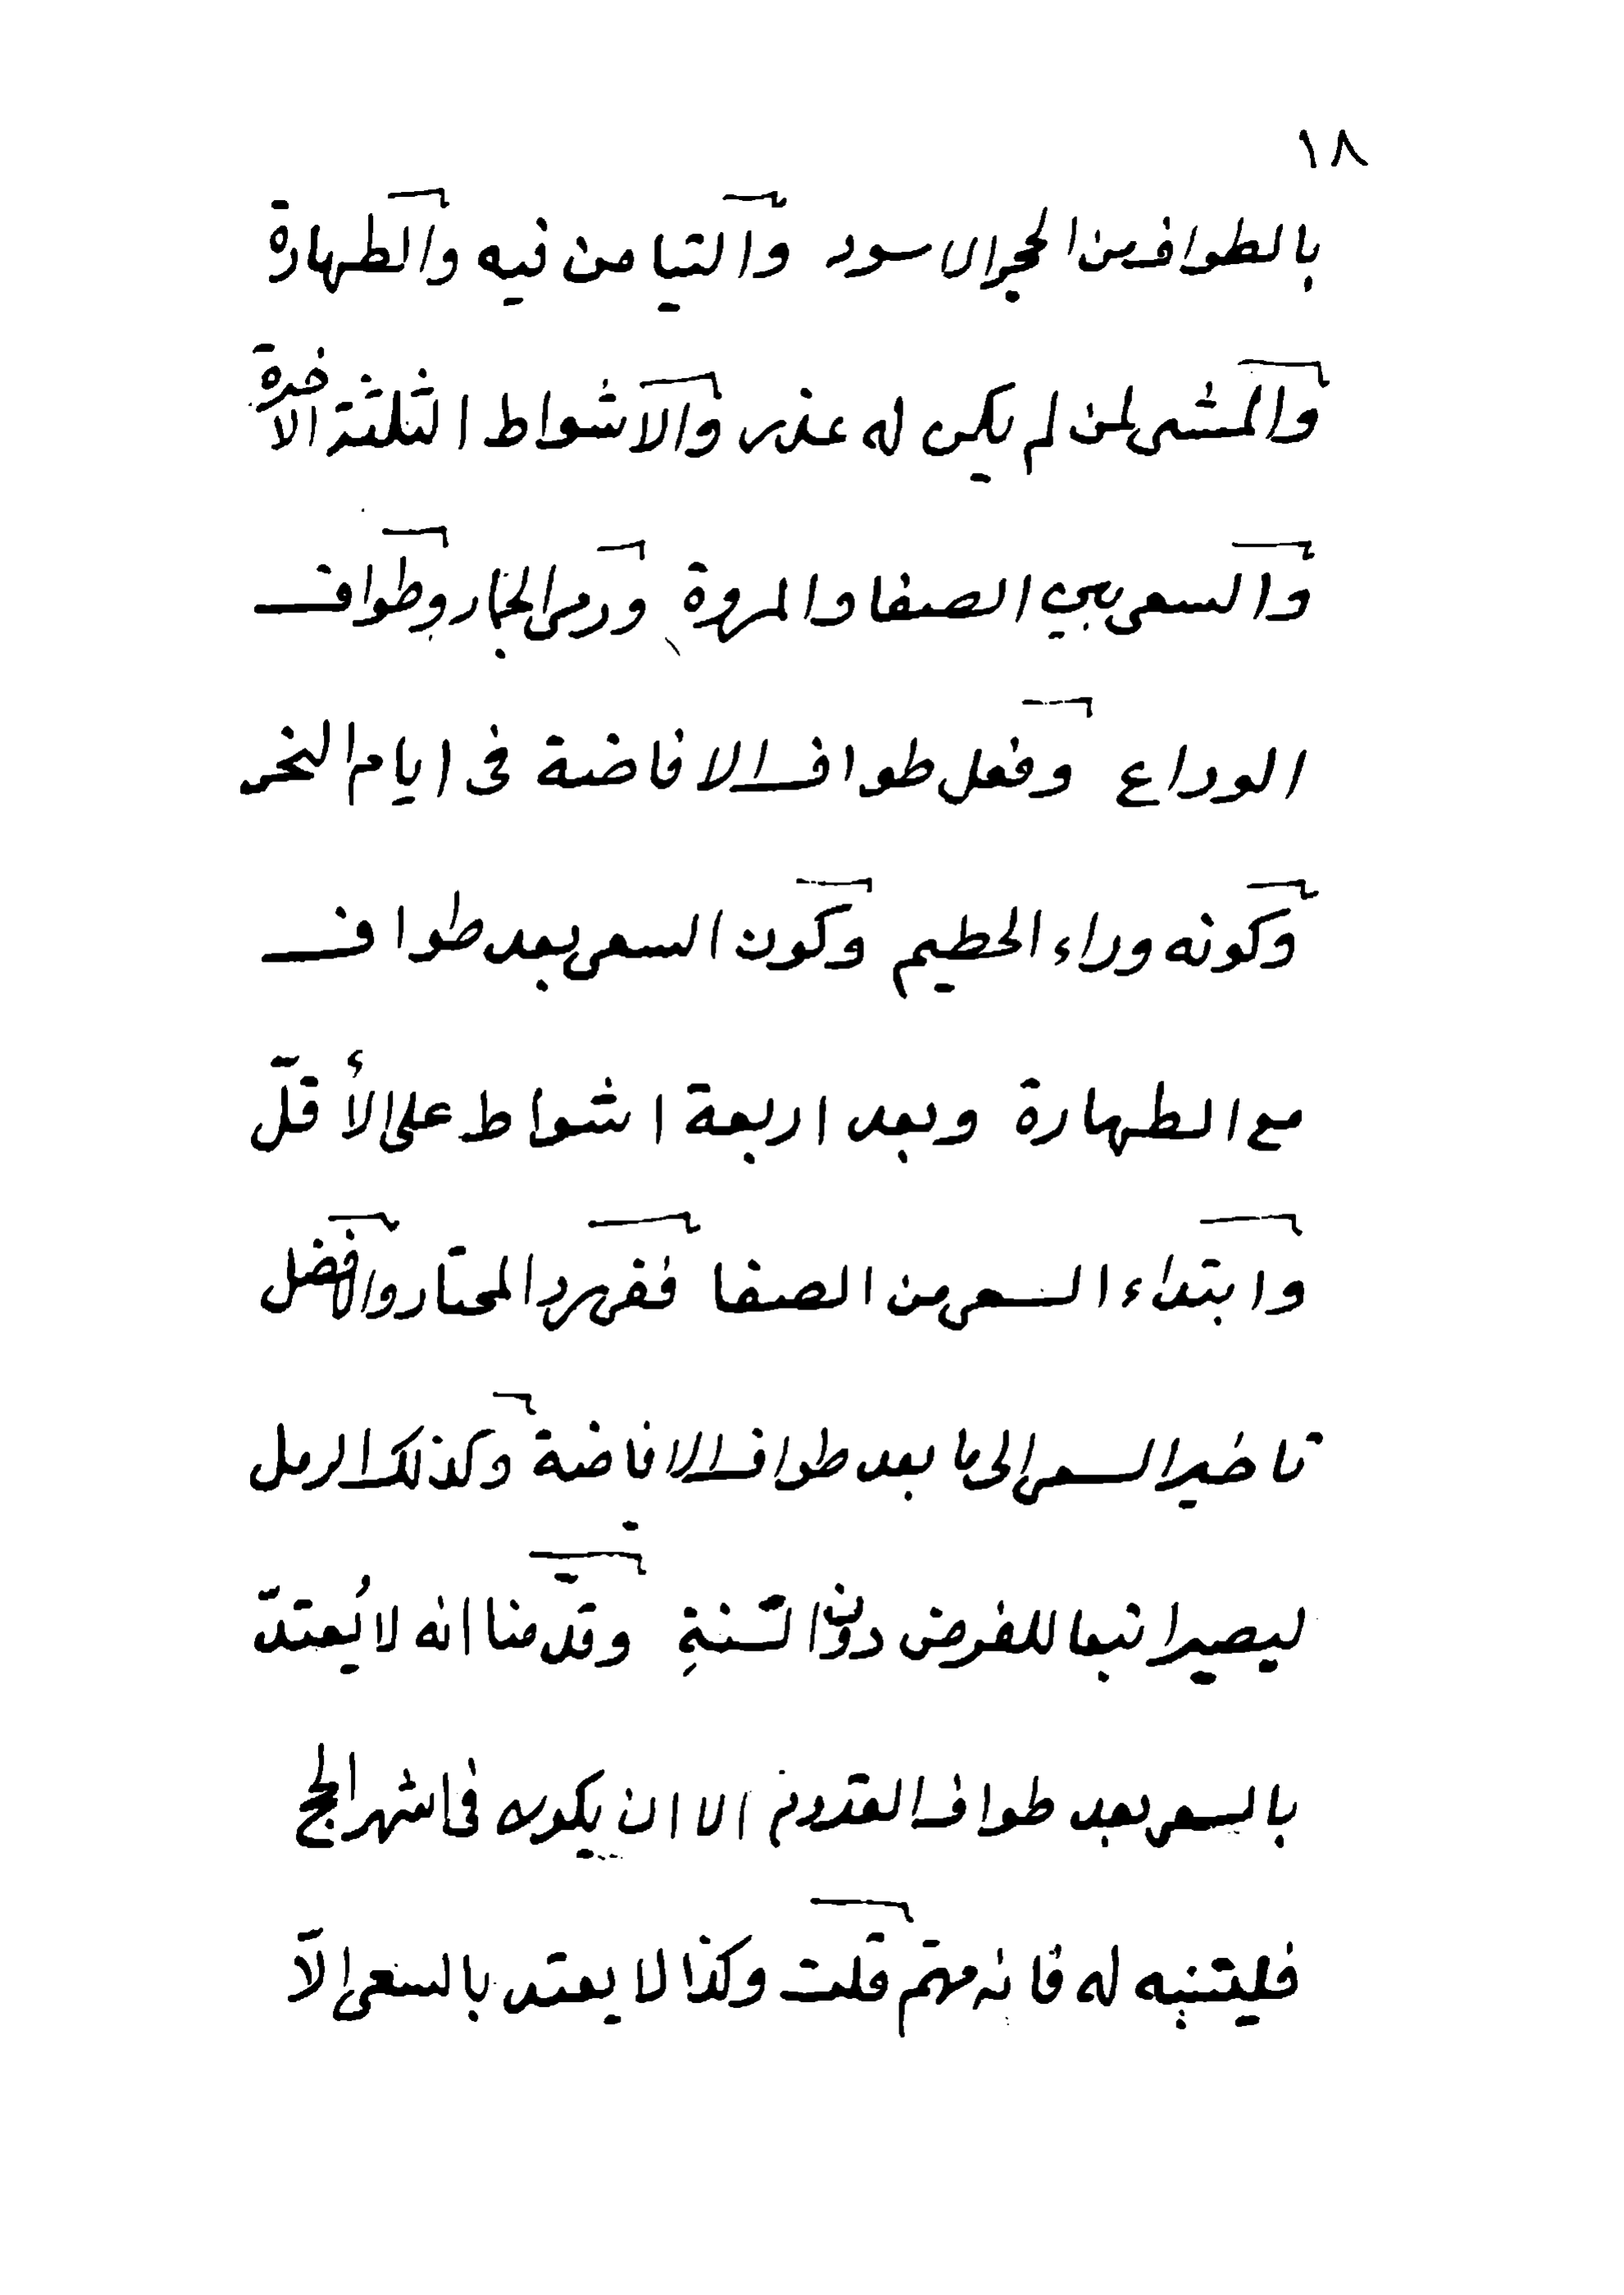 ١٨
بالطواف من الحجر الاسود والتيامن فيه والطهارة
والمشى لمن لم يكن له عذر والاشواط الثلثة الاخيرة
والسعى بين الصفا والمروة ورمى الجمار وطواف
الوداع وفعل طواف الافاضة فى ايام النحر
وكونه وراء الحطيم وكون السعى بعد طواف
مع الطهارة وبعد اربعة اشواط على الأقلّ
وابتداء السعى من الصفا المختار والافضل
تاخير السعى الى ما بعد طواف الافاضة وكذلك الرمل
ليصيرا تبعا للفرض دون السّنةِ وقدّمنا انه لا يُعتدّ
بالسعى بعد طواف القدوم الا ان يكون فى اشهر الحج
فليتنبه له فانه مهمّ قلت وكذا لا يعتد بالسعى إلاّ